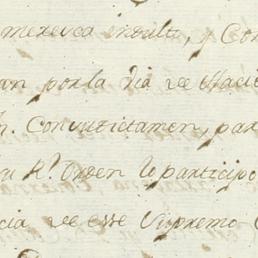 merezca indulto, y Con
an por la via de Haci
n. Con su dictamen, par
su Rl. Orden lo participo
cia de ese Supremo C